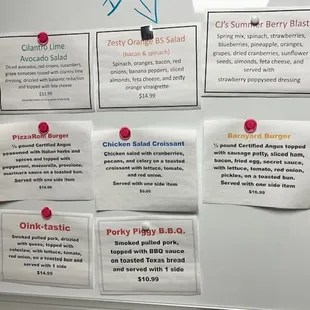 Cilantro Lime
Avocado Salad
Diced avocados, red onions, cucumbers,
grape tomatoes tossed with cilantro lime
dressing, drizzled with balsamic reduction
and topped with feta cheese
$11.99
Zesty Orange BS Salad
(bacon & spinach)
Spinach, oranges, bacon, red
onions, banana peppers, sliced
almonds, feta cheese, and zesty
orange vinaigrette
$14.99
CJ's Summer Berry Blast
Spring mix, spinach, strawberries,
blueberries, pineapple, oranges,
grapes, dried cranberries, sunflower
seeds, almonds, feta cheese and
served with
strawberry poppyseed dressing
PizzaRoni Burger
½ pound Certified Angus
seasoned with Italian herbs and
spices and topped with
pepperoni, mozzarella, provolone,
marinara sauce on a toasted bun.
Served with one side item
Chicken Salad Croissant
Chicken salad with cranberries,
pecans, and celery on a toasted
croissant with lettuce, tomato,
and red onion.
Served with one side item
$9.99
Barnyard Burger
½ pound Certified Angus topped
with sausage patty, sliced ham,
bacon, fried egg, secret sauce,
with lettuce, tomato, red onion,
pickles, on a toasted bun.
Served with one side item
Oink-tastic
Smoked pulled pork, drizzled
with queso, topped with
coleslaw, with lettuce, tomato,
red onion, on a toasted bun and
served with 1 side
$14.99
Porky Piggy B.B.Q.
Smoked pulled pork,
topped with BBQ sauce
on toasted Texas bread
and served with 1 side
$10.99